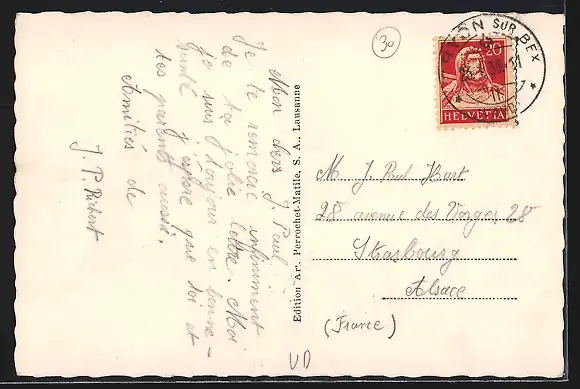 Mon cher J. Paul
Je te remercie infiniment
de ta jolie lettre. Moi
je suis toujours en bonne
santé j'espère que toi et
tes parents aussi.
Amitiés de
J. P. Richert
Edition Art. Perrochet-Matile, S. A., Lausanne
30
GRYON SUR BEX
20
HELVETIA
M J. Paul Hart
28 avenue des Vosges 28
Strasbourg
Alsace
(France)
VD